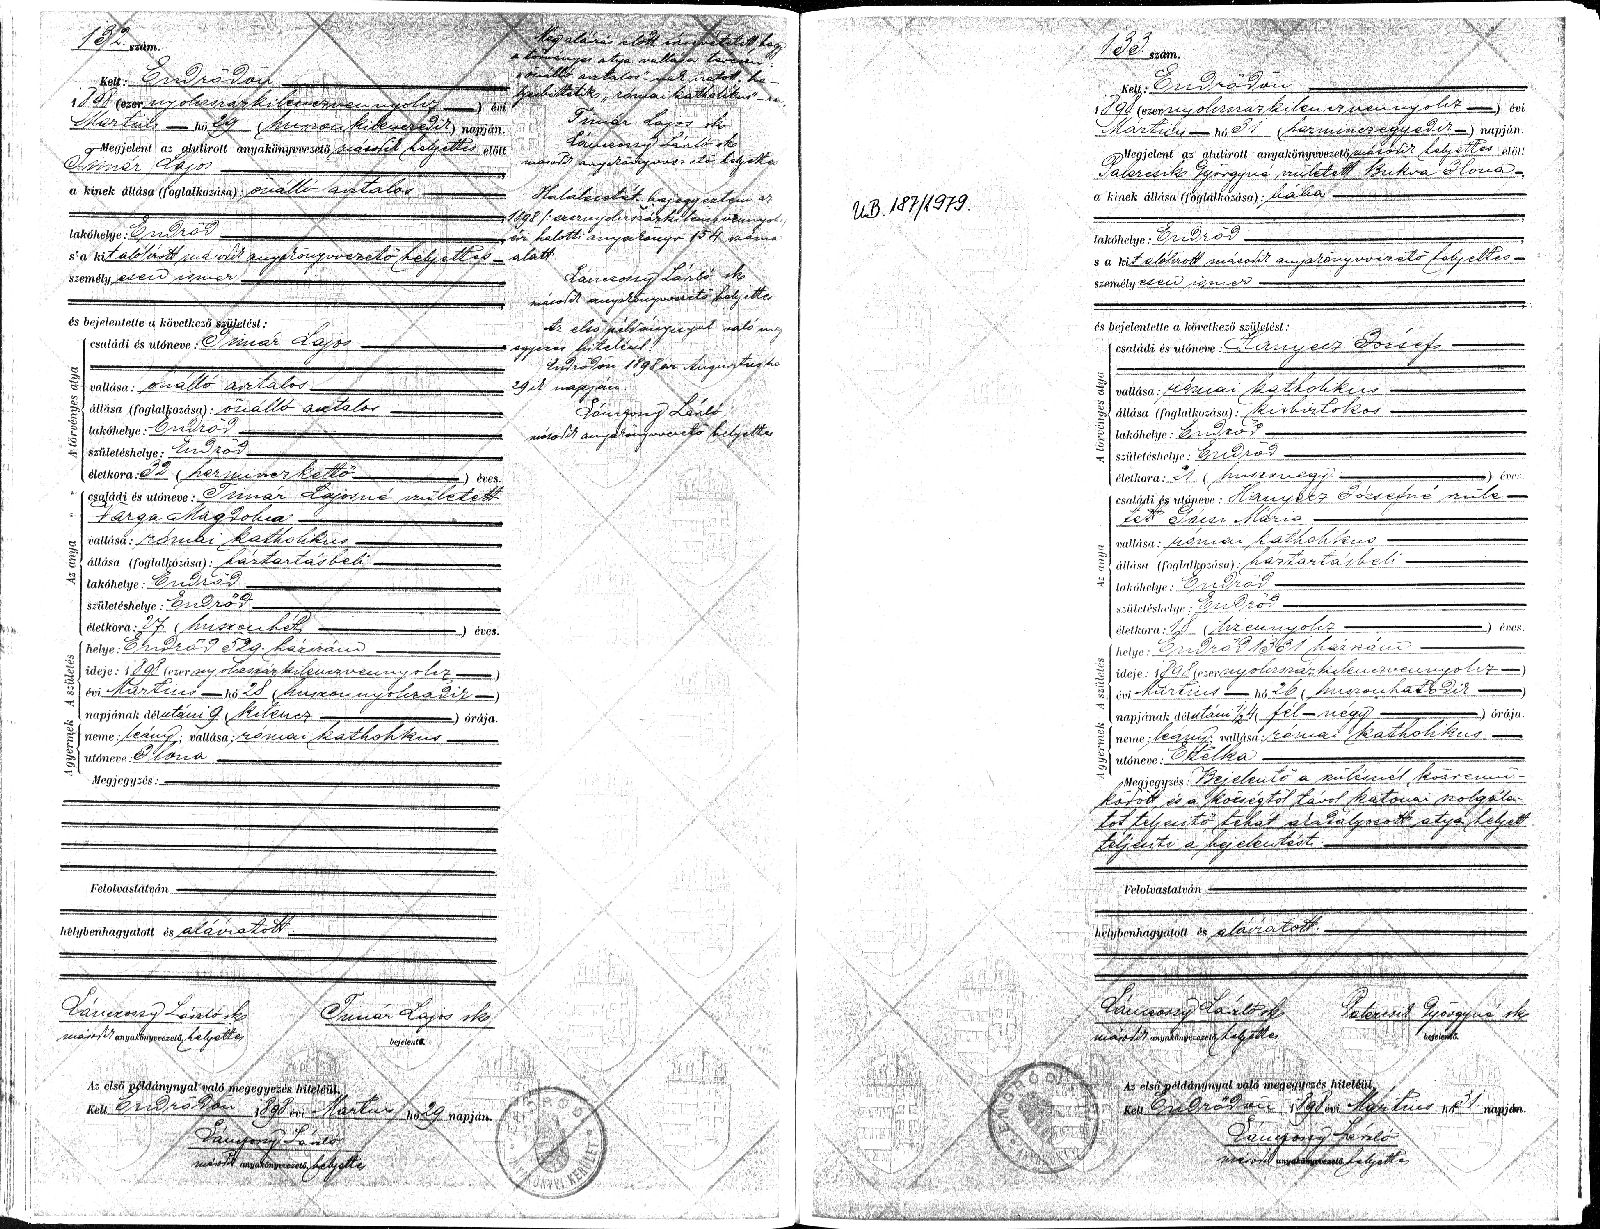 132 szám.
Kelt: Endrődön
1898 (ezer nyolcszázkilenczvennyolcz) évi
Mártius hó 29 (huszonkilenczedik) napján.
Megjelent az alulirott anyakönyvvezető második helyettes előtt
Timár Lajos
a kinek állása (foglalkozása): önálló asztalos
lakóhelye: Endrőd
s'a kit alólirott második anyakönyvvezető helyettes
személyesen ismer
és bejelentette a következő születést:
A törvényes atya
családi és utóneve: Timár Lajos
vallása: önálló asztalos
állása (foglalkozása): önálló asztalos
lakóhelye: Endrőd
születéshelye: Endrőd
életkora: 32 (harminczkettő) éves.
Az anya
családi és utóneve: Timár Lajosné született
Varga Magdolna
vallása: római katholikus
állása (foglalkozása): háztartásbeli
lakóhelye: Endrőd
születéshelye: Endrőd
életkora: 27 (huszonhét) éves.
A születés
helye: Endrőd 529 házszám
ideje: 1898 (ezer nyolcszázkilenczvennyolcz)
évi Mártius hó 28 (huszonnyolczadik)
napjának délutáni 9 (kilencz) órája.
A gyermek
neme: leány; vallása: római katholikus
utóneve: Ilona
Megjegyzés:
Felolvastatván
helybenhagyatott és aláiratott
Lánczony László sk Timár Lajos sk
második anyakönyvvezető helyettes bejelentő.
Az első példánynyal való megegyezés hiteléül.
Kelt Endrődön 1898 évi Mártius hó 29 napján.
Lánczony László
második anyakönyvvezető helyettes
Még aláirás előtt észrevétetett, hogy
a törvényes atya vallása tévesen
"önálló asztalos"-nak iratott,
helyesbittetik "római katholikus"-ra.
Timár Lajos sk
Lánczony László sk
második anyakönyvvezető helyettes
Halálesetét bejegyeztem az
1898 (ezernyolcszázkilenczvennyolcz)
évi halotti anyakönyv 154 száma
alatt.
Lánczony László sk
második anyakönyvvezető helyettes
Az első példánynyal való meg
egyezés hiteléül
Endrődön 1898 évi Augusztus hó
29 ik napján.
Lánczony László
második anyakönyvvezető helyettes
U.B. 187/1979.
133 szám.
Kelt: Endrődön
1898 (ezer nyolcszázkilenczvennyolcz) évi
Mártius hó 31 (harminczegyedik) napján.
Megjelent az alulirott anyakönyvvezető második helyettes előtt
Györgyné született Bukva Ilona
a kinek állása (foglalkozása): bába
lakóhelye: Endrőd
s a kit alólirott második anyakönyvvezető helyettes
személyesen ismer
és bejelentette a következő születést:
A törvényes atya
családi és utóneve: Hanyecz József
vallása: római katholikus
állása (foglalkozása): kisbirtokos
lakóhelye: Endrőd
születéshelye: Endrőd
életkora: 21 éves.
Az anya
családi és utóneve: Hanyecz Józsefné szüle
tett Mária
vallása: római katholikus
állása (foglalkozása): háztartásbeli
lakóhelye: Endrőd
születéshelye: Endrőd
életkora: 18 (tizennyolcz) éves.
A születés
helye: Endrőd 1361 házszám
ideje: 1898 (ezer nyolcszázkilenczvennyolcz)
évi Mártius hó 26 (huszonhatodik)
napjának délutáni ½4 (fél-négy) órája.
A gyermek
neme: leány; vallása: római katholikus
utóneve: Etelka
Megjegyzés: Bejelentő a szülésnél közremű-
ködött, és a községtől távol katonai szolgála-
tot teljesitő tehát akadályozott atya helyett
teljesiti a bejelentést.
Felolvastatván
helybenhagyatott és aláiratott.
Lánczony László sk Györgyné sk
második anyakönyvvezető helyettes bejelentő.
Az első példánynyal való megegyezés hiteléül.
Kelt Endrődön 1898 évi Mártius hó 31 napján.
Lánczony László
második anyakönyvvezető helyettes